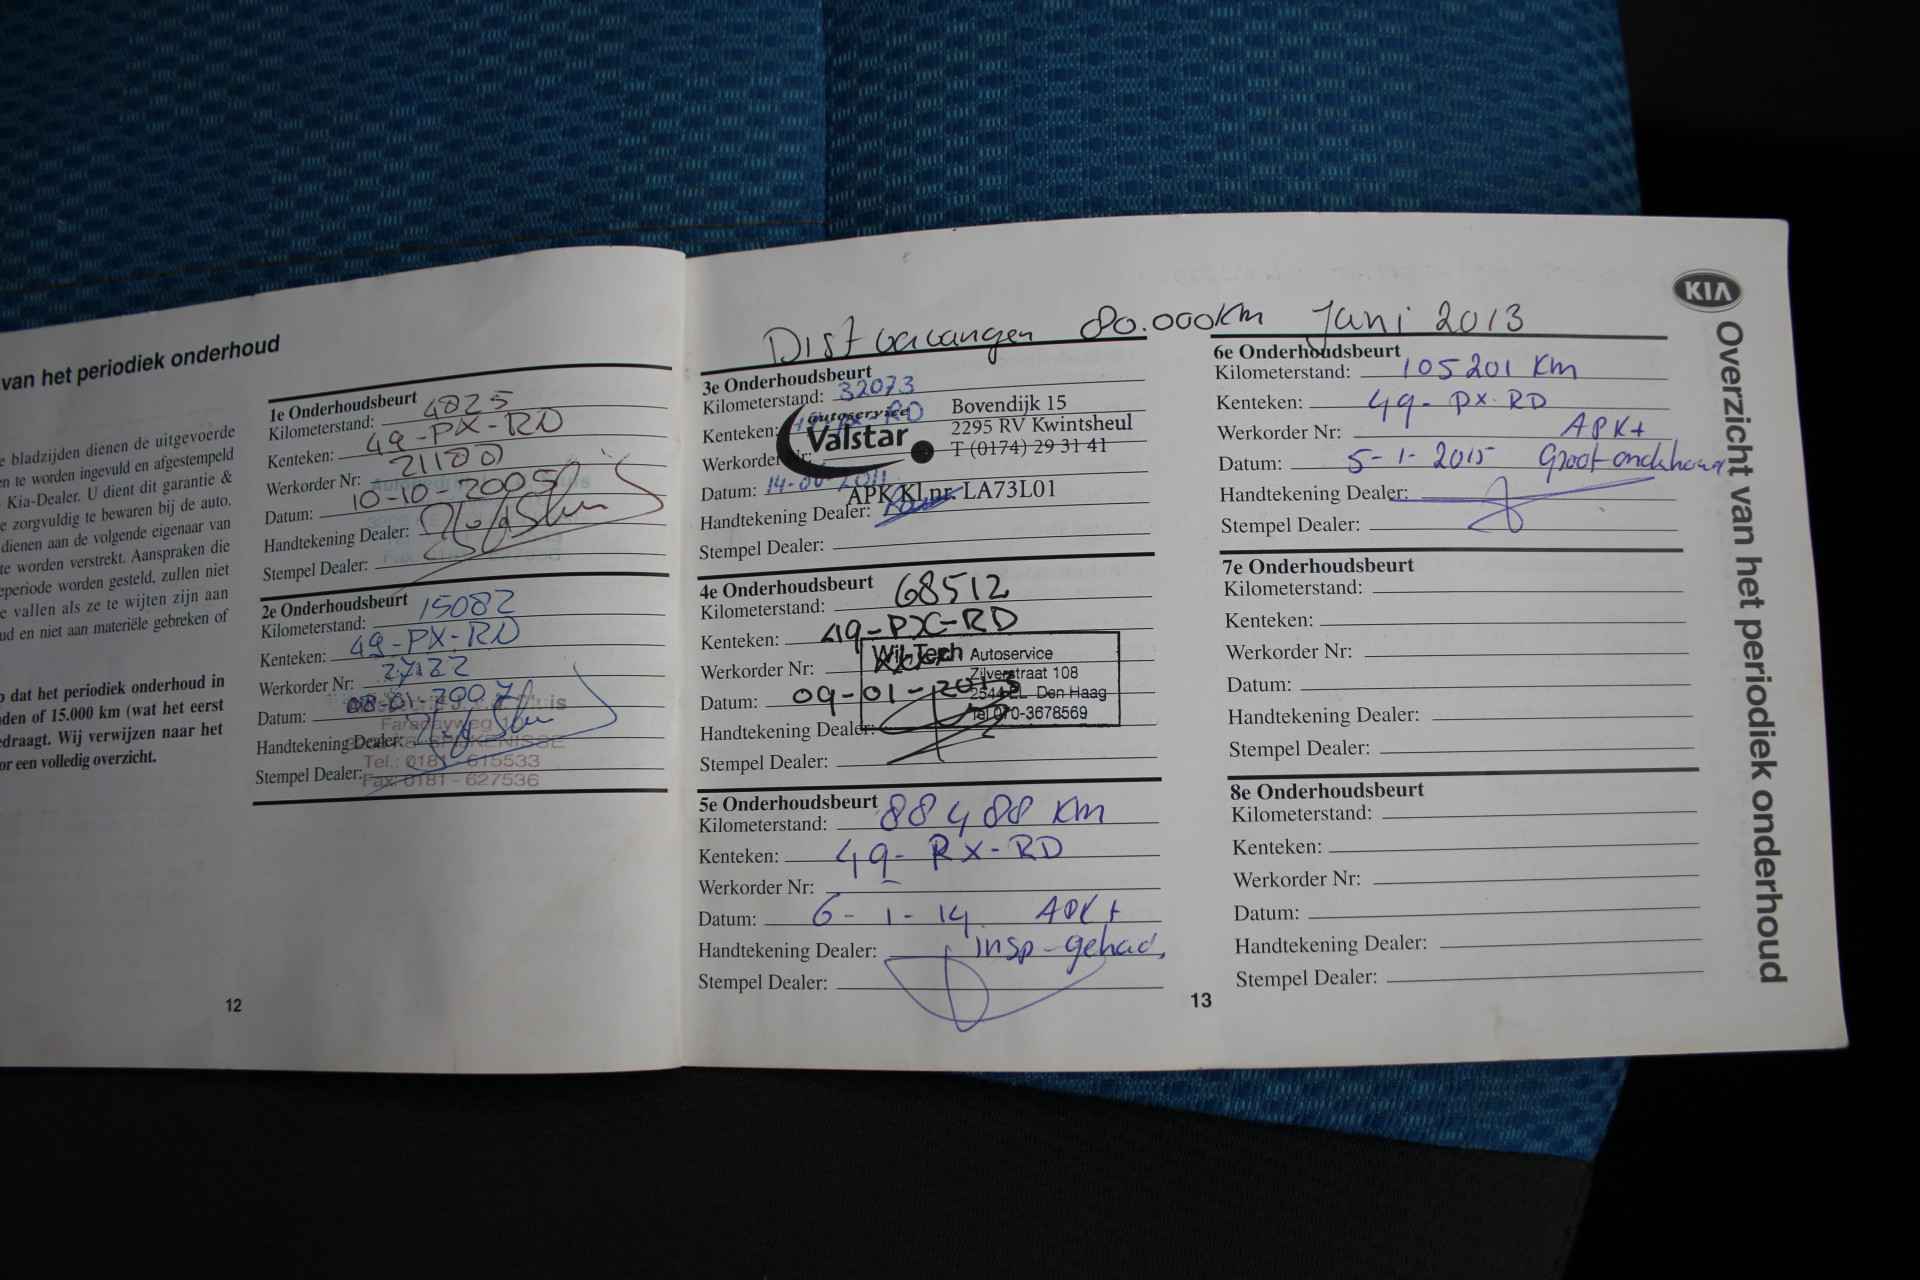 van het periodiek onderhoud
e bladzijden dienen de uitgevoerde
en te worden ingevuld en afgestempeld
Kia-Dealer. U dient dit garantie &
e zorgvuldig te bewaren bij de auto.
dienen aan de volgende eigenaar van
te worden verstrekt. Aanspraken die
eperiode worden gesteld, zullen niet
e vallen als ze te wijten zijn aan
ud en niet aan materiële gebreken of
p dat het periodiek onderhoud in
den of 15.000 km (wat het eerst
edraagt. Wij verwijzen naar het
or een volledig overzicht.
1e Onderhoudsbeurt
Kilometerstand: 4825
Kenteken: 49-PX-RD
Werkorder Nr: 21180
Datum: 10-10-2005
Handtekening Dealer:
Stempel Dealer:
2e Onderhoudsbeurt
Kilometerstand: 15082
Kenteken: 49-PX-RD
Werkorder Nr: 27122
Datum: 08-01-2007
Faradayweg
Handtekening Dealer:
SPIJKENISSE
Tel.: 0181 - 615533
Stempel Dealer:
Fax: 0181 - 627536
12
Dist vervangen 80.000km Juni 2013
3e Onderhoudsbeurt
Kilometerstand: 32073
Kenteken:
Autoservice
Valstar
Bovendijk 15
2295 RV Kwintsheul
T (0174) 29 31 41
Werkorder Nr:
Datum: 14-06-2011
APK Kl.nr. LA73L01
Handtekening Dealer:
Stempel Dealer:
4e Onderhoudsbeurt
Kilometerstand: 68512
Kenteken: 49-PX-RD
Werkorder Nr:
Wil-Tech Autoservice
Zilverstraat 108
Datum: 09-01-2013
2544 EL Den Haag
Tel 070-3678569
Handtekening Dealer:
Stempel Dealer:
5e Onderhoudsbeurt
Kilometerstand: 88488 KM
Kenteken: 49-RX-RD
Werkorder Nr:
Datum: 6-1-14 APK +
Handtekening Dealer: insp-gehad,
Stempel Dealer:
6e Onderhoudsbeurt
Kilometerstand: 105201 KM
Kenteken: 49-PX-RD
Werkorder Nr: APK+
Datum: 5-1-2015 Groot onderhoud
Handtekening Dealer:
Stempel Dealer:
7e Onderhoudsbeurt
Kilometerstand:
Kenteken:
Werkorder Nr:
Datum:
Handtekening Dealer:
Stempel Dealer:
8e Onderhoudsbeurt
Kilometerstand:
Kenteken:
Werkorder Nr:
Datum:
Handtekening Dealer:
Stempel Dealer:
13
KIA
Overzicht van het periodiek onderhoud